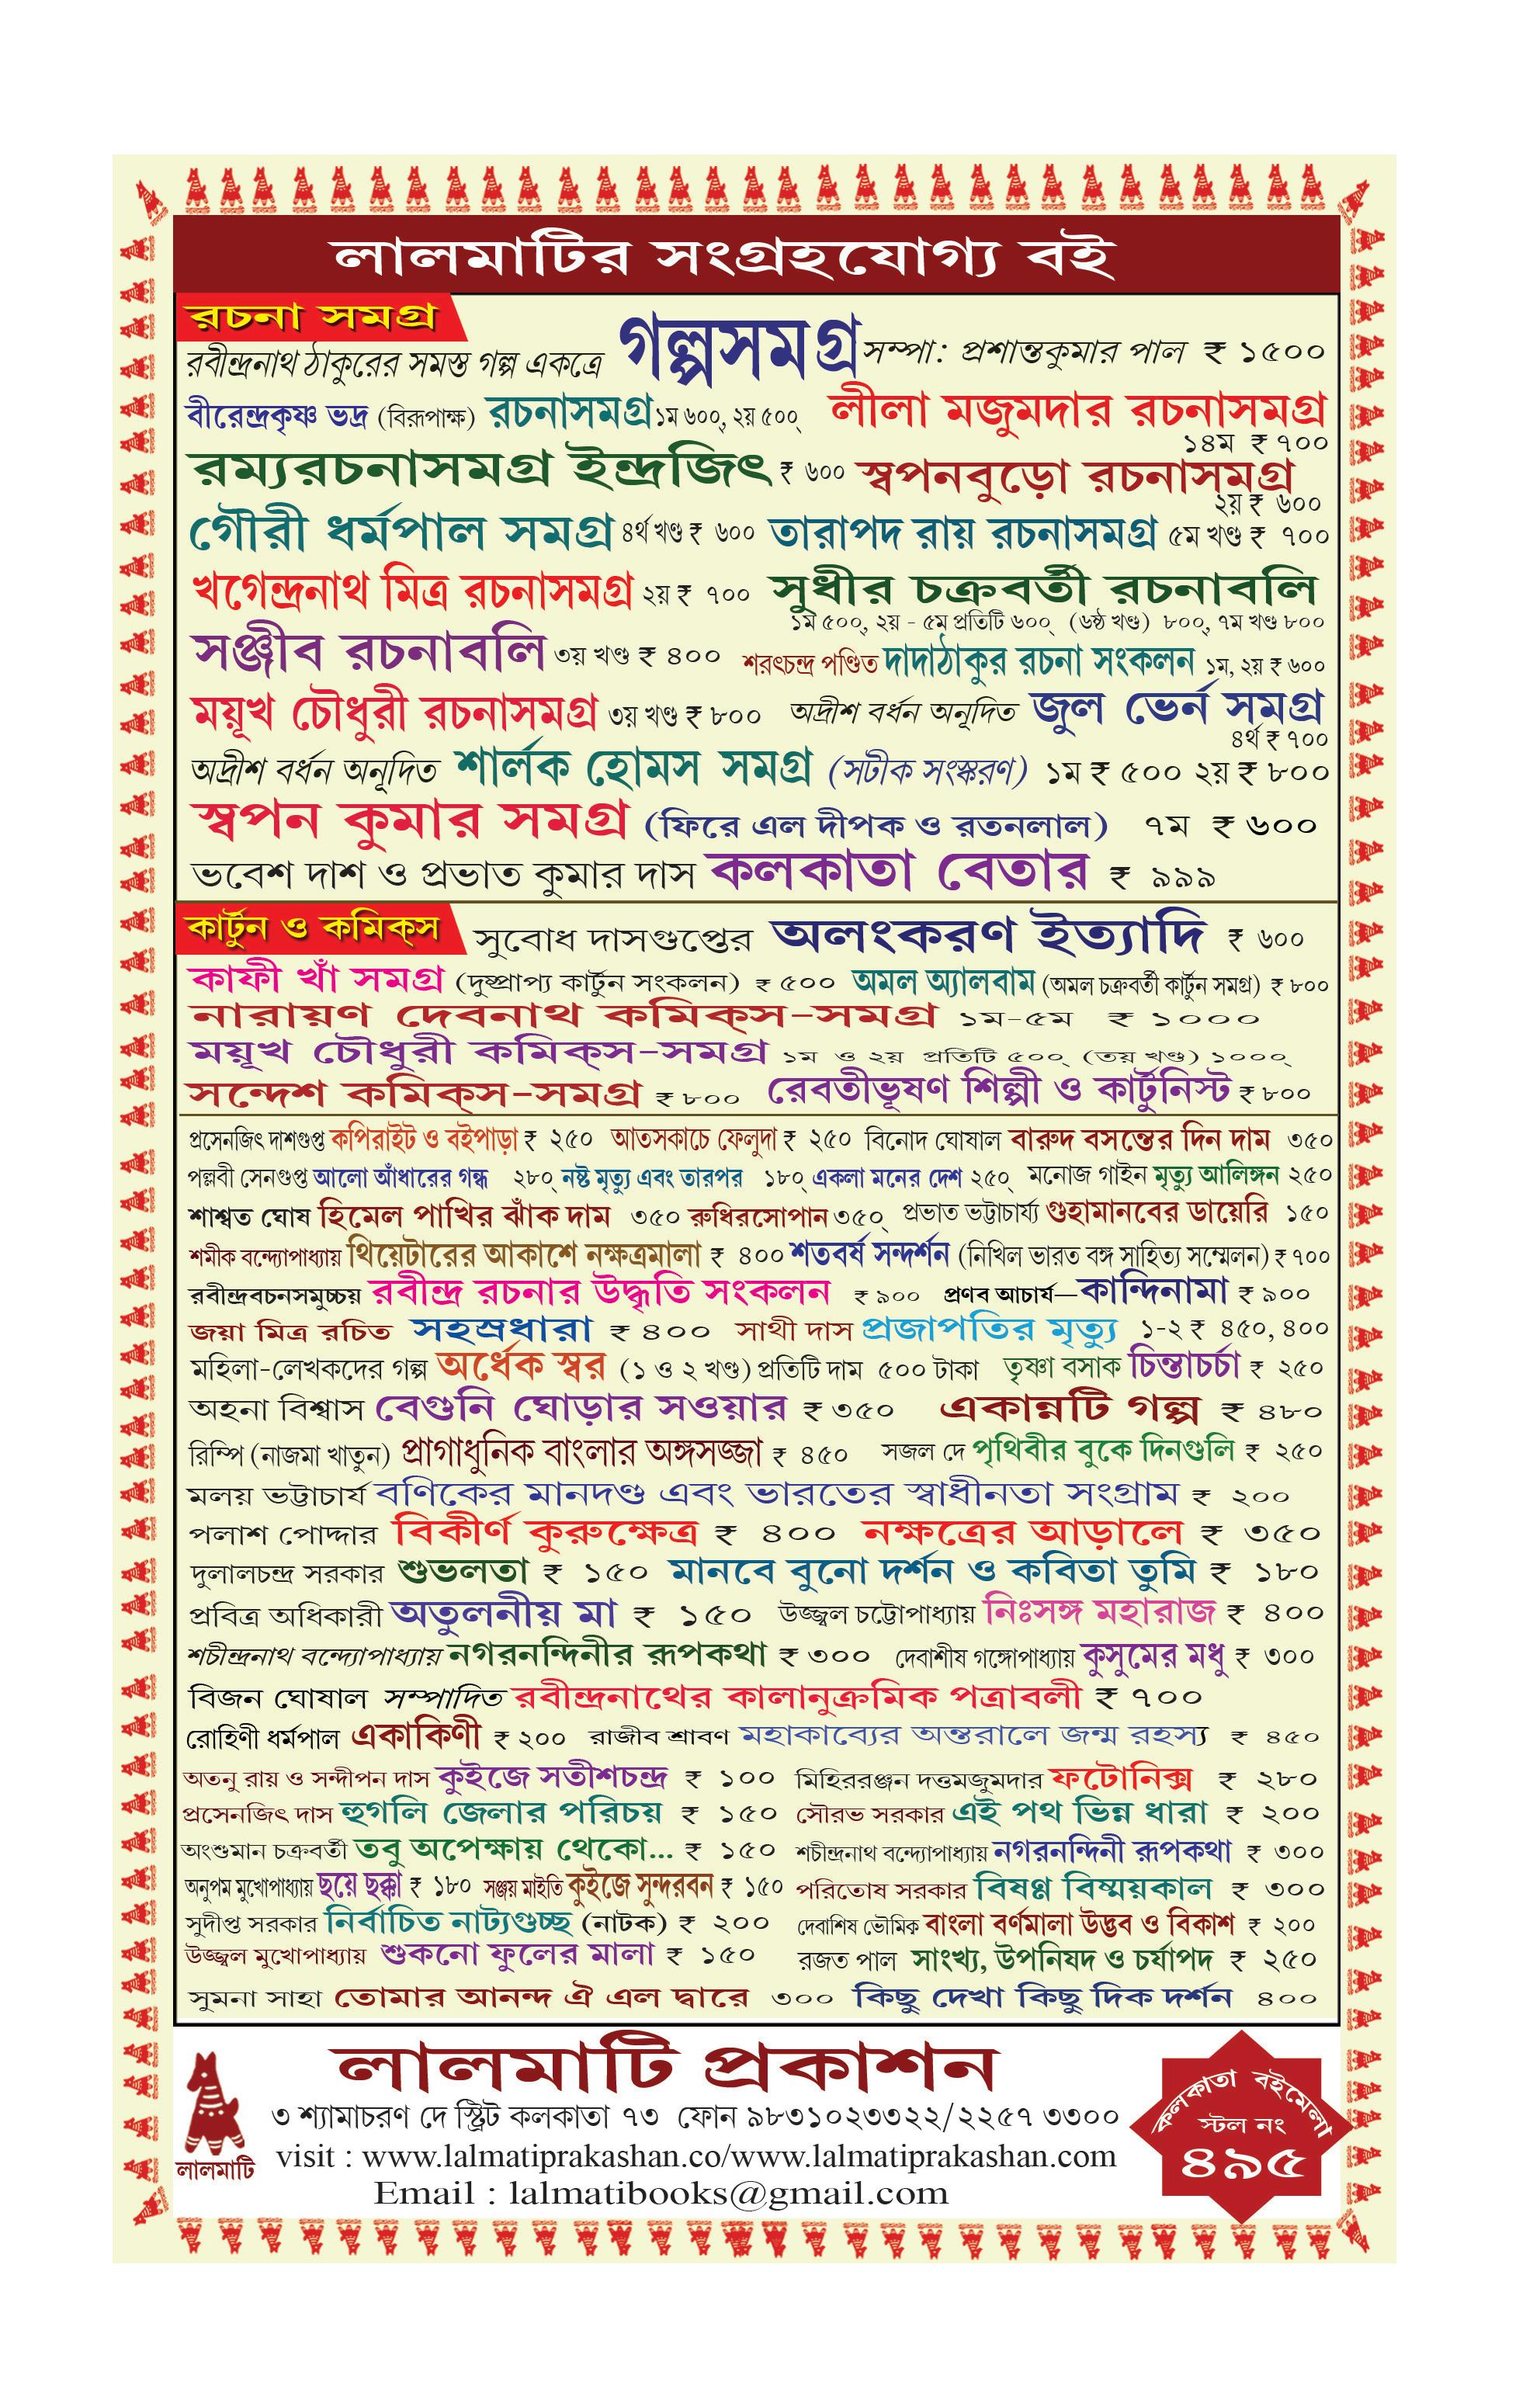 লালমাটির সংগ্রহযোগ্য বই
রচনা সমগ্র
রবীন্দ্রনাথ ঠাকুরের সমস্ত গল্প একত্রে গল্পসমগ্র সম্পা: প্রশান্তকুমার পাল ₹ ১৫০০
বীরেন্দ্রকৃষ্ণ ভদ্র (বিরূপাক্ষ) রচনাসমগ্র ১ম ৬০০্, ২য় ৫০০্ লীলা মজুমদার রচনাসমগ্র
১৪ম ₹ ৭০০
রম্যরচনাসমগ্র ইন্দ্রজিৎ ₹ ৬০০ স্বপনবুড়ো রচনাসমগ্র
২য় ₹ ৬০০
গৌরী ধর্মপাল সমগ্র ৪র্থ খণ্ড ₹ ৬০০ তারাপদ রায় রচনাসমগ্র ৫ম খণ্ড ₹ ৭০০
খগেন্দ্রনাথ মিত্র রচনাসমগ্র ২য় ₹ ৭০০ সুধীর চক্রবর্তী রচনাবলি
১ম ৫০০্, ২য় - ৫ম প্রতিটি ৬০০্ (৬ষ্ঠ খণ্ড) ৮০০্, ৭ম খণ্ড ৮০০
সঞ্জীব রচনাবলি ৩য় খণ্ড ₹ ৪০০ শরৎচন্দ্র পণ্ডিত দাদাঠাকুর রচনা সংকলন ১ম, ২য় ₹ ৬০০
ময়ূখ চৌধুরী রচনাসমগ্র ৩য় খণ্ড ₹ ৮০০ অদ্রীশ বর্ধন অনূদিত জুল ভের্ন সমগ্র
৪র্থ ₹ ৭০০
অদ্রীশ বর্ধন অনূদিত শার্লক হোমস সমগ্র (সটীক সংস্করণ) ১ম ₹ ৫০০ ২য় ₹ ৮০০
স্বপন কুমার সমগ্র (ফিরে এল দীপক ও রতনলাল) ৭ম ₹ ৬০০
ভবেশ দাশ ও প্রভাত কুমার দাস কলকাতা বেতার ₹ ৯৯৯
কার্টুন ও কমিক্‌স সুবোধ দাসগুপ্তের অলংকরণ ইত্যাদি ₹ ৬০০
কাফী খাঁ সমগ্র (দুষ্প্রাপ্য কার্টুন সংকলন) ₹ ৫০০ অমল অ্যালবাম (অমল চক্রবর্তী কার্টুন সমগ্র) ₹ ৮০০
নারায়ণ দেবনাথ কমিক্‌স-সমগ্র ১ম-৫ম ₹ ১০০০
ময়ূখ চৌধুরী কমিক্‌স-সমগ্র ১ম ও ২য় প্রতিটি ৫০০্ (৩য় খণ্ড) ১০০০্
সন্দেশ কমিক্‌স-সমগ্র ₹ ৮০০ রেবতীভূষণ শিল্পী ও কার্টুনিস্ট ₹ ৮০০
প্রসেনজিৎ দাশগুপ্ত কপিরাইট ও বইপাড়া ₹ ২৫০ আতসকাচে ফেলুদা ₹ ২৫০ বিনোদ ঘোষাল বারুদ বসন্তের দিন দাম ৩৫০
পল্লবী সেনগুপ্ত আলো আঁধারের গন্ধ ২৮০্ নষ্ট মৃত্যু এবং তারপর ১৮০্ একলা মনের দেশ ২৫০্ মনোজ গাইন মৃত্যু আলিঙ্গন ২৫০
শাশ্বত ঘোষ হিমেল পাখির ঝাঁক দাম ৩৫০ রুধিরসোপান ৩৫০্ প্রভাত ভট্টাচার্য্য গুহামানবের ডায়েরি ১৫০
শমীক বন্দ্যোপাধ্যায় থিয়েটারের আকাশে নক্ষত্রমালা ₹ ৪০০ শতবর্ষ সন্দর্শন (নিখিল ভারত বঙ্গ সাহিত্য সম্মেলন) ₹ ৭০০
রবীন্দ্রবচনসমুচ্চয় রবীন্দ্র রচনার উদ্ধৃতি সংকলন ₹ ৯০০ প্রণব আচার্য—কান্দিনামা ₹ ৯০০
জয়া মিত্র রচিত সহস্রধারা ₹ ৪০০ সাথী দাস প্রজাপতির মৃত্যু ১-২ ₹ ৪৫০, ৪০০
মহিলা-লেখকদের গল্প অর্ধেক স্বর (১ ও ২ খণ্ড) প্রতিটি দাম ৫০০ টাকা তৃষ্ণা বসাক চিন্তাচর্চা ₹ ২৫০
অহনা বিশ্বাস বেগুনি ঘোড়ার সওয়ার ₹ ৩৫০ একান্নটি গল্প ₹ ৪৮০
রিম্পি (নাজমা খাতুন) প্রাগাধুনিক বাংলার অঙ্গসজ্জা ₹ ৪৫০ সজল দে পৃথিবীর বুকে দিনগুলি ₹ ২৫০
মলয় ভট্টাচার্য বণিকের মানদণ্ড এবং ভারতের স্বাধীনতা সংগ্রাম ₹ ২০০
পলাশ পোদ্দার বিকীর্ণ কুরুক্ষেত্র ₹ ৪০০ নক্ষত্রের আড়ালে ₹ ৩৫০
দুলালচন্দ্র সরকার শুভলতা ₹ ১৫০ মানবে বুনো দর্শন ও কবিতা তুমি ₹ ১৮০
প্রবিত্র অধিকারী অতুলনীয় মা ₹ ১৫০ উজ্জ্বল চট্টোপাধ্যায় নিঃসঙ্গ মহারাজ ₹ ৪০০
শচীন্দ্রনাথ বন্দ্যোপাধ্যায় নগরনন্দিনীর রূপকথা ₹ ৩০০ দেবাশীষ গঙ্গোপাধ্যায় কুসুমের মধু ₹ ৩০০
বিজন ঘোষাল সম্পাদিত রবীন্দ্রনাথের কালানুক্রমিক পত্রাবলী ₹ ৭০০
রোহিণী ধর্মপাল একাকিণী ₹ ২০০ রাজীব শ্রাবণ মহাকাব্যের অন্তরালে জন্ম রহস্য ₹ ৪৫০
অতনু রায় ও সন্দীপন দাস কুইজে সতীশচন্দ্র ₹ ১০০ মিহিররঞ্জন দত্তমজুমদার ফটোনিক্স ₹ ২৮০
প্রসেনজিৎ দাস হুগলি জেলার পরিচয় ₹ ১৫০ সৌরভ সরকার এই পথ ভিন্ন ধারা ₹ ২০০
অংশুমান চক্রবর্তী তবু অপেক্ষায় থেকো... ₹ ১৫০ শচীন্দ্রনাথ বন্দ্যোপাধ্যায় নগরনন্দিনী রূপকথা ₹ ৩০০
অনুপম মুখোপাধ্যায় ছয়ে ছক্কা ₹ ১৮০ সঞ্জয় মাইতি কুইজে সুন্দরবন ₹ ১৫০ পরিতোষ সরকার বিষণ্ণ বিষ্ময়কাল ₹ ৩০০
সুদীপ্ত সরকার নির্বাচিত নাট্যগুচ্ছ (নাটক) ₹ ২০০ দেবাশিষ ভৌমিক বাংলা বর্ণমালা উদ্ভব ও বিকাশ ₹ ২০০
উজ্জ্বল মুখোপাধ্যায় শুকনো ফুলের মালা ₹ ১৫০ রজত পাল সাংখ্য, উপনিষদ ও চর্যাপদ ₹ ২৫০
সুমনা সাহা তোমার আনন্দ ঐ এল দ্বারে ৩০০ কিছু দেখা কিছু দিক দর্শন ৪০০
লালমাটি প্রকাশন
৩ শ্যামাচরণ দে স্ট্রিট কলকাতা ৭৩ ফোন ৯৮৩১০২৩৩২২/২২৫৭ ৩৩০০
visit : www.lalmatiprakashan.co/www.lalmatiprakashan.com
Email : lalmatibooks@gmail.com
লালমাটি
কলকাতা বইমেলা
স্টল নং
৪৯৫